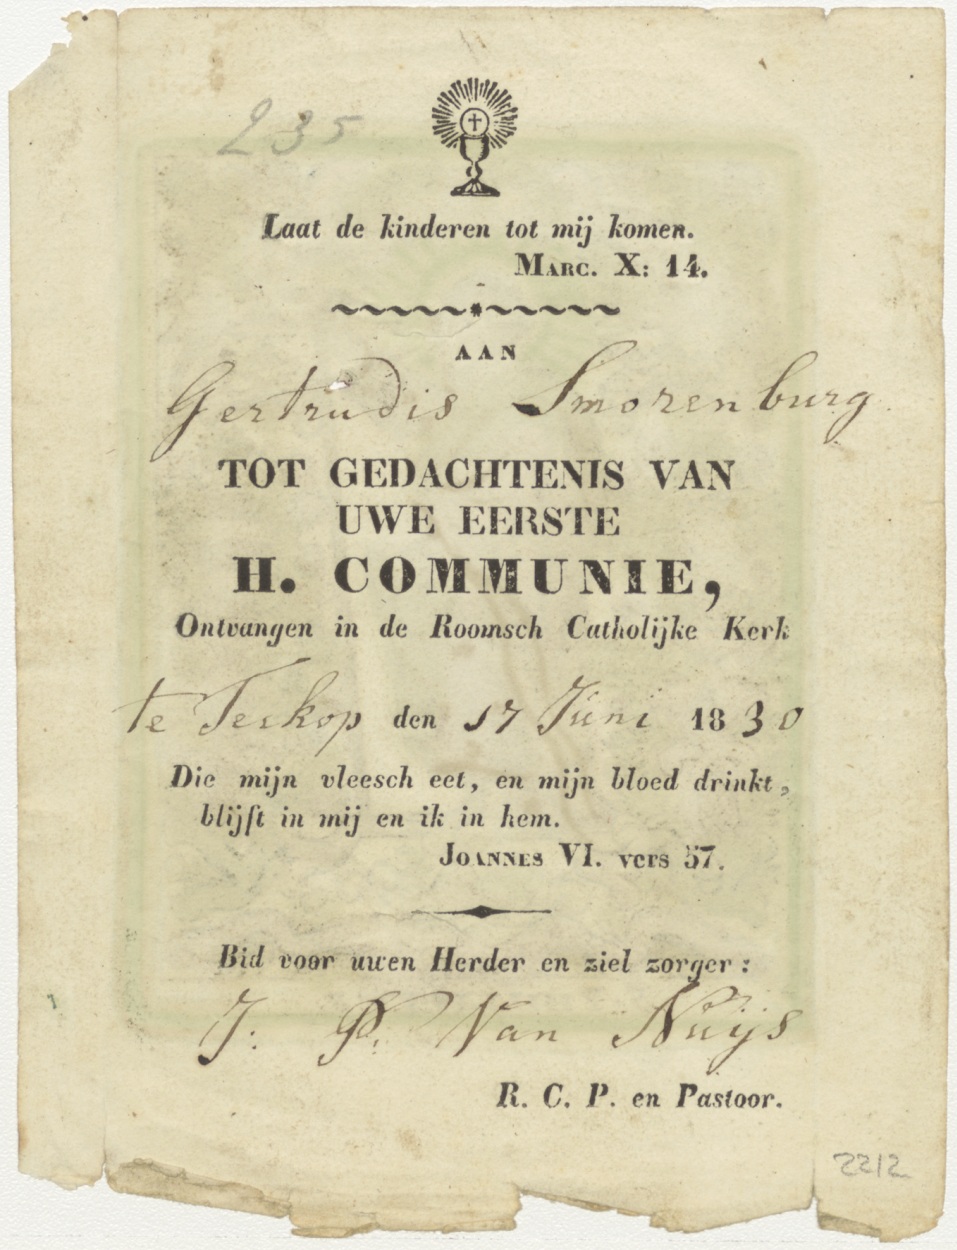 235
Laat de kinderen tot mij komen.
MARC. X: 14.
AAN
Gertrudis Smorenburg
TOT GEDACHTENIS VAN
UWE EERSTE
H. COMMUNIE,
Ontvangen in de Roomsch Catholijke Kerk
te Teskop den 17 Juni 1830
Die mijn vleesch eet, en mijn bloed drinkt,
blijft in mij en ik in hem.
JOANNES VI. vers 57.
Bid voor uwen Herder en ziel zorger:
J. P. Van Nuijs
R. C. P. en Pastoor.
2212